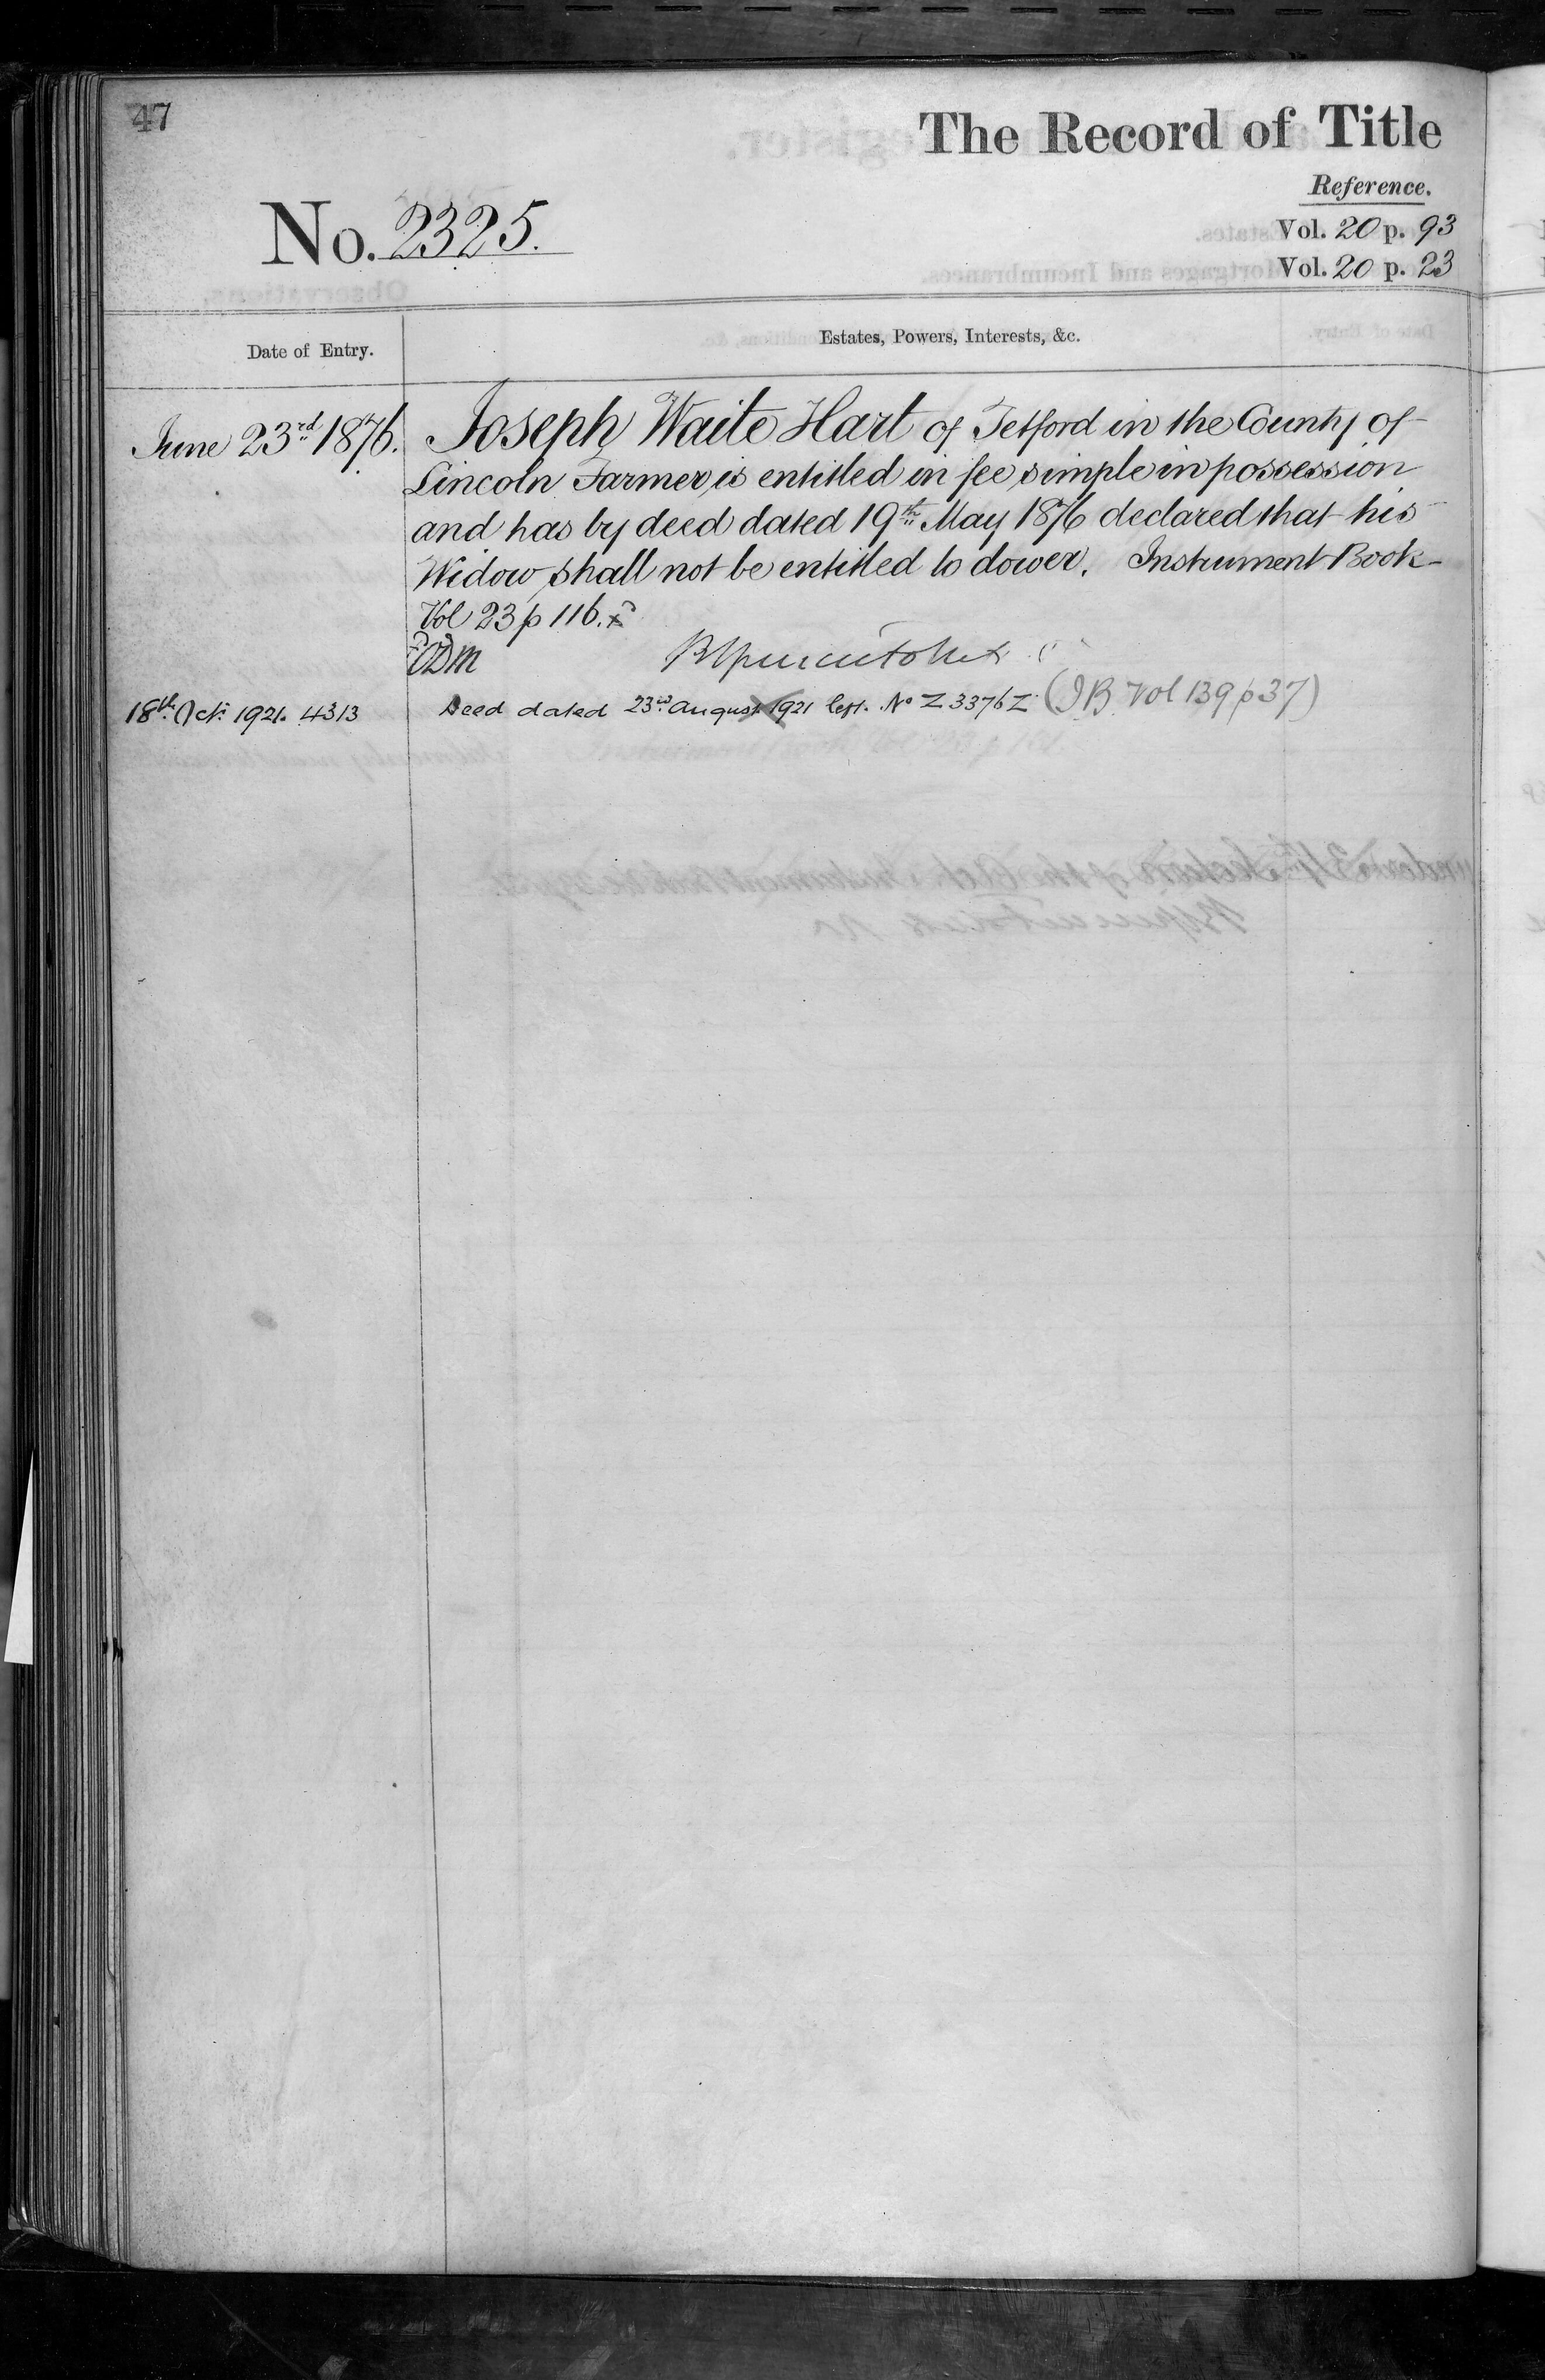 47
The Record of Title
Reference.
No. 2325.
Vol. 20 p. 93
Vol. 20 p. 23
Date of Entry.
Estates, Powers, Interests, &c.
June 23rd 1876.
Joseph Waite Hart of Tetford in the County of
Lincoln Farmer is entitled in fee simple in possession
and has by deed dated 19th May 1876 declared that his
Widow shall not be entitled to dower. Instrument Book
Vol 23 p 116.
18th Oct. 1921. 4313
Deed dated 23rd August 1921 left. No Z 3376 Z (IB Vol 139 p 37)